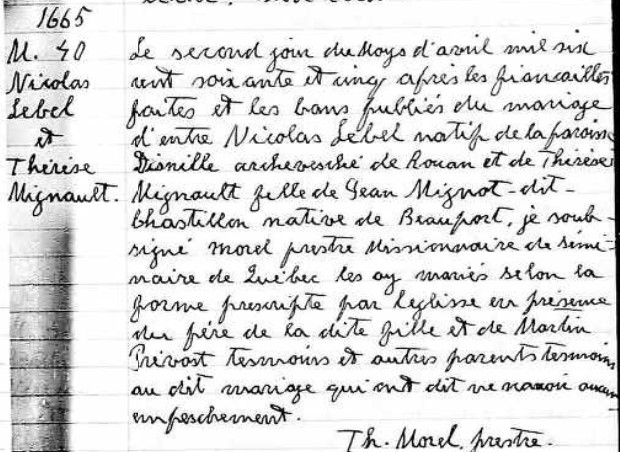 1665
M. 40
Nicolas
Lebel
et
Thérèse
Mignault.
Le second jour du Moys d'avril mil six
cent soixante et cinq après les fiancailles
faites et les bans publiés du mariage
d'entre Nicolas Lebel natif de la paroisse
archevesché de Rouan et de Thérèse
Mignault fille de Jean Mignot-dit-
Chastillon native de Beauport, je soub-
signé Morel prestre Missionnaire du sémi-
naire de Québec les ay mariés selon la
forme prescripte par leglisse en présence
du père de la dite fille et de Martin
Prévost tesmoins et autres parents tesmoins
au dit mariage qui ont dit ne aucun
empeschement.
Th. Morel, prestre.